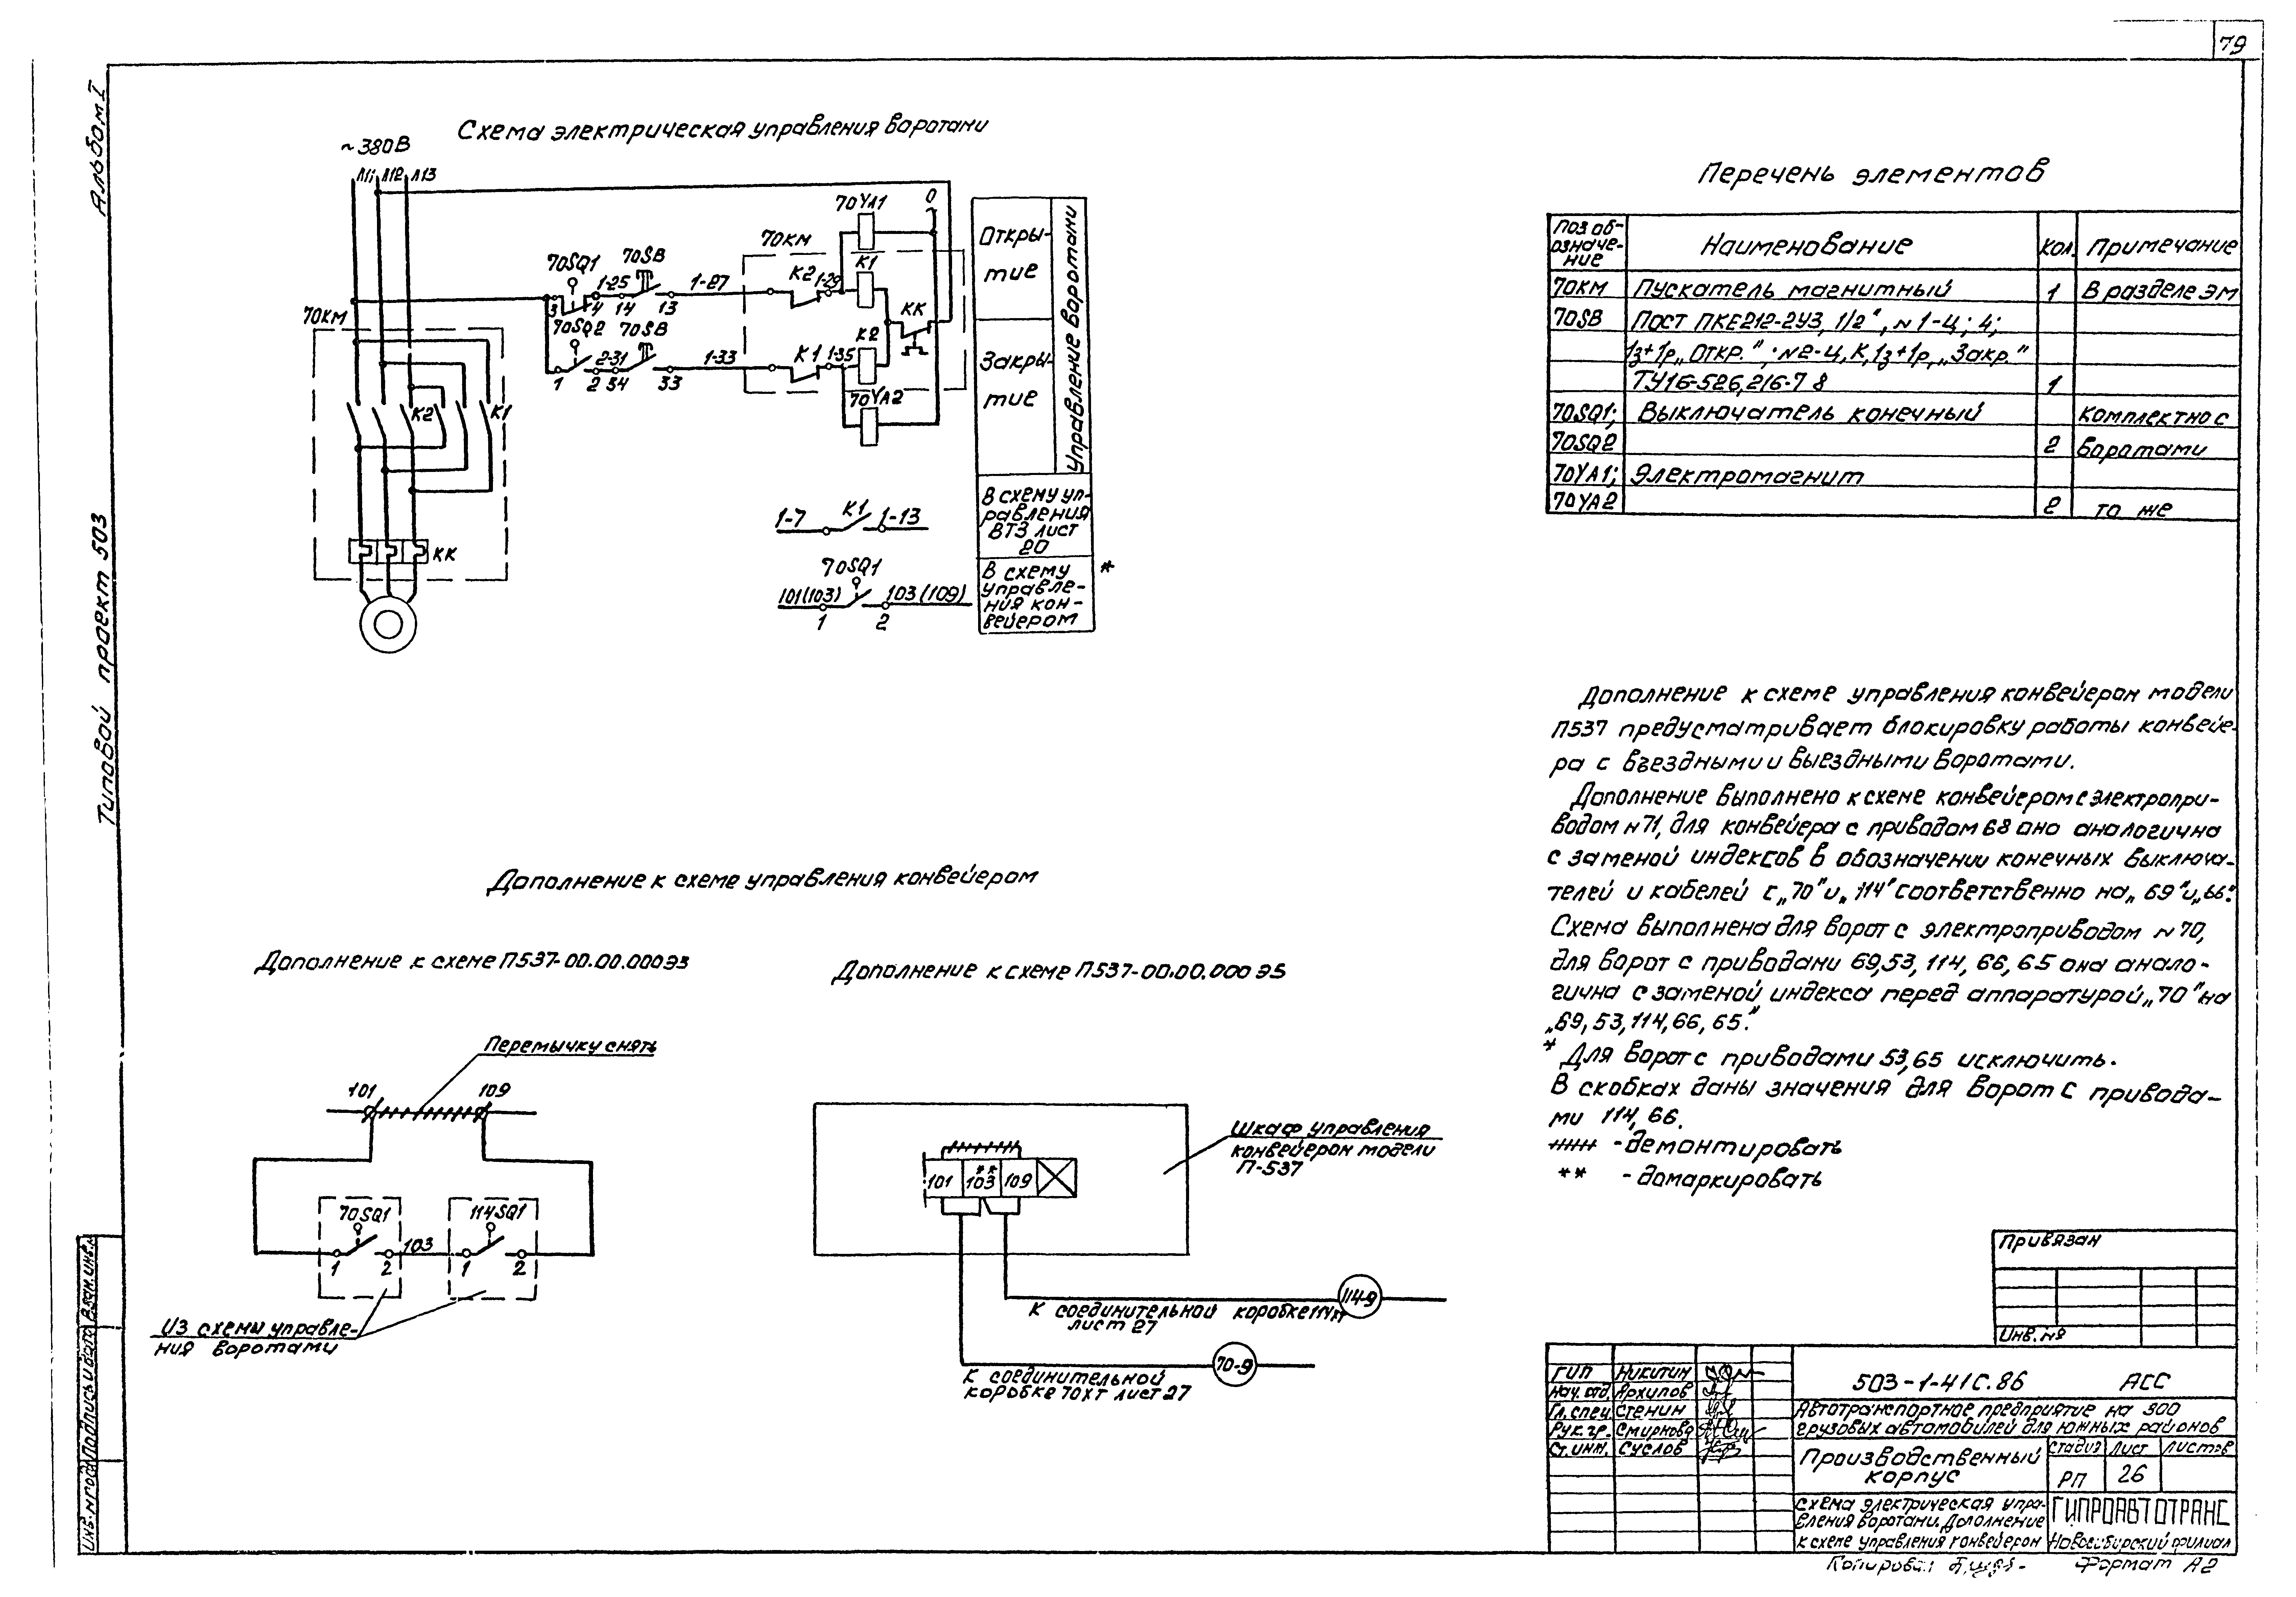 79
Альбом I
Типовой проект 503
Схема электрическая управления воротами
~380В
Л11 Л12 Л13
70КМ
К2
К1
КК
70SQ1
70SB
1-25
1-27
3 4 14 13
70SQ2 70SB
2-31
1-33
1 2 34 33
70КМ
70YA1
0
К2
1-29
К1
КК
К2
К1
1-35
70YA2
Откры-
тие
Закры-
тие
Управление воротами
1-7
К1
1-13
В схему уп-
равления
ВТЗ лист
20
70SQ1
101(103)
103(109)
1 2
В схему
управле-
ния кон-
вейером
*
Перечень элементов
Поз об-
означе-
ние
Наименование
Кол.
Примечание
70КМ Пускатель магнитный 1 В разделе ЭМ
70SB Пост ПКЕ212-2У3, 1/2", N 1-Ц; 4;
1з+1р „Откр."; N2-Ц, К, 1з+1р, „Закр."
ТУ16-526,216-78 1
70SQ1; Выключатель конечный комплектно с
70SQ2 2 воротами
70YA1; Электромагнит
70YA2 2 то же
Дополнение к схеме управления конвейером модели
П537 предусматривает блокировку работы конвейе-
ра с въездными и выездными воротами.
Дополнение выполнено к схеме конвейером с электропри-
водом N71, для конвейера с приводом 68 оно аналогично
с заменой индексов в обозначении конечных выключа-
телей и кабелей с „70" и „114" соответственно на „69" и „66".
Схема выполнена для ворот с электроприводом N 70,
для ворот с приводами 69,53, 114, 66, 65 она анало-
гична с заменой индекса перед аппаратурой „70" на
„69, 53, 114, 66, 65".
* Для ворот с приводами 53,65 исключить.
В скобках даны значения для ворот с привода-
ми 114, 66.
- демонтировать
** - домаркировать
Дополнение к схеме управления конвейером
Дополнение к схеме П537-00.00.000Э3
Перемычку снять
101
109
70SQ1
114SQ1
103
1 2 1 2
Из схемы управле-
ния воротами
Дополнение к схеме П537-00.00.000 Э5
Шкаф управления
конвейером модели
П-537
**
101 103 109
114-9
К соединительной коробке 114ХТ
лист 27
70-9
К соединительной
коробке 70ХТ лист 27
Привязан
Инв. №
ГИП Никитин
Нач. отд. Архипов
Гл. спец. Стенин
Рук. гр. Смирнова
Ст. инж. Суслов
503-1-41С.86 АСС
Автотранспортное предприятие на 300
грузовых автомобилей для южных районов
Производственный
корпус
Стадия Лист Листов
РП 26
Схема электрическая упра-
вления воротами. Дополнение
к схеме управления конвейером
ГИПРОАВТОТРАНС
Новосибирский филиал
Копировал
Формат А2
Инв. № подл. Подпись и дата Взам. инв. №